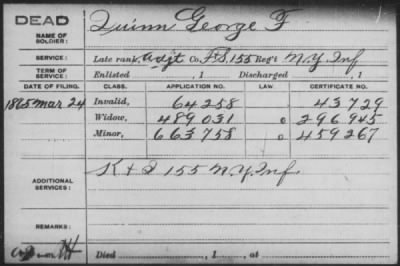 DEAD
NAME OF SOLDIER: Quinn George F
SERVICE: Late rank, Adjt Co. F.S. 155 Reg't N.Y. Inf
TERM OF SERVICE: Enlisted , 1 Discharged , 1
DATE OF FILING. CLASS. APPLICATION NO. LAW. CERTIFICATE NO.
1865 Mar 24 Invalid, 64258 43729
Widow, 489031 o 296945
Minor, 663758 o 459267
ADDITIONAL SERVICES: K + I 155 N.Y. Inf.
REMARKS:
Died , 1 , at